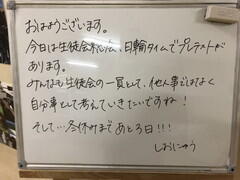 おはようございます。
今日は生徒会私伝、日輪タイムでプレテストが
あります。
みんなも生徒会の一員として、他人事ではなく
自分事として考えていきたいですね!
そして…冬休みまであと3日!!!
しおにゅう